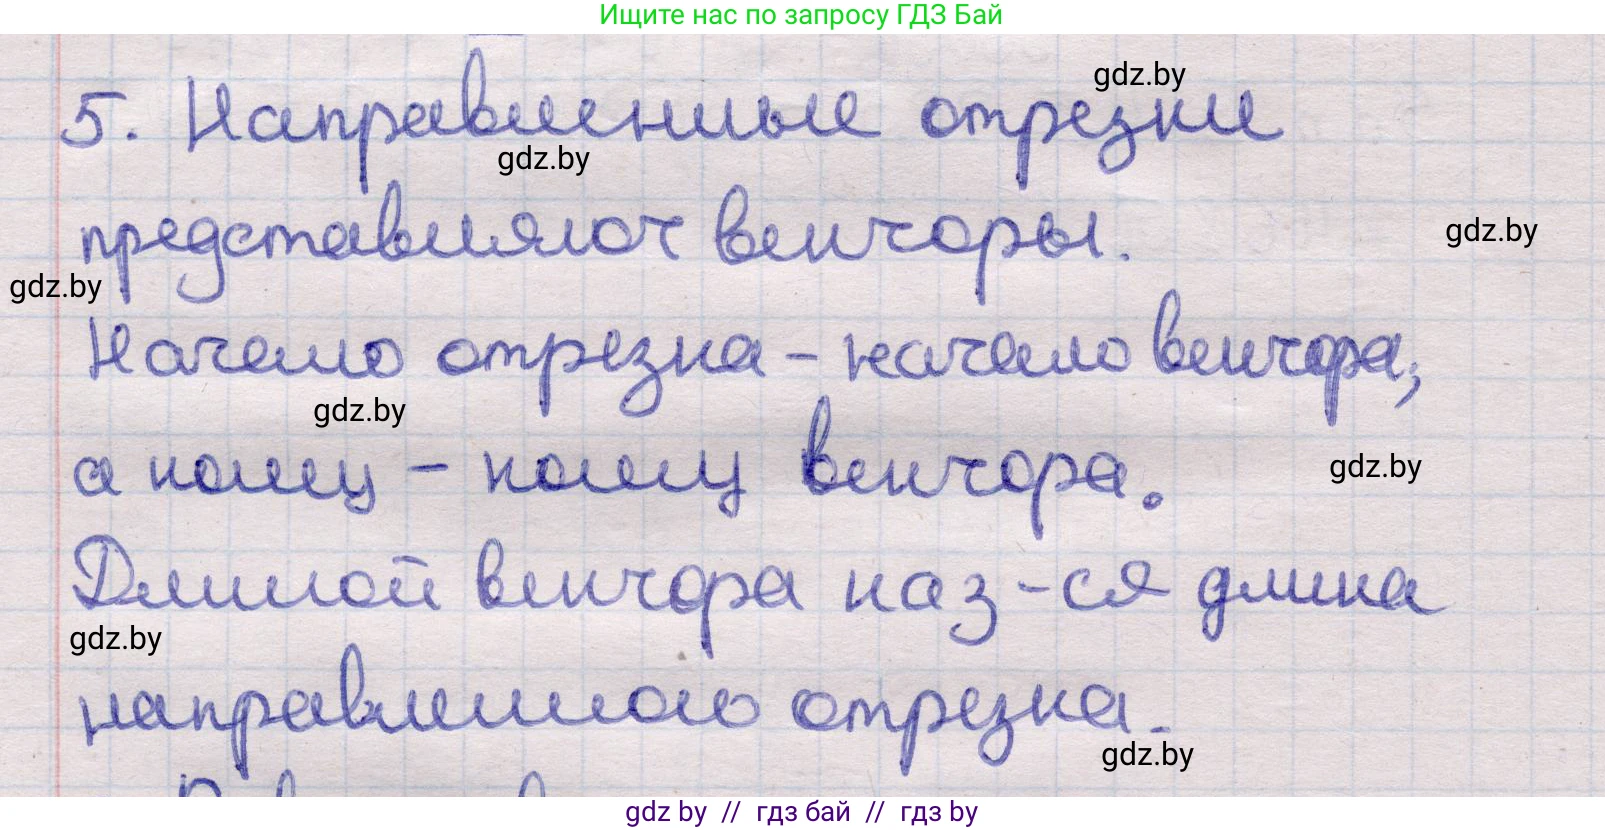 Ищите нас по запросу ГДЗ Бай
gdz.by
5. Направленные отрезки
gdz.by
представляют векторы.
gdz.by
gdz.by
Начало отрезка - начало вектора,
gdz.by
а конец - концу вектора.
gdz.by
Длиной вектора наз-ся длина
gdz.by
направленного отрезка.
gdz.by
gdz by // гдз бай // gdz by